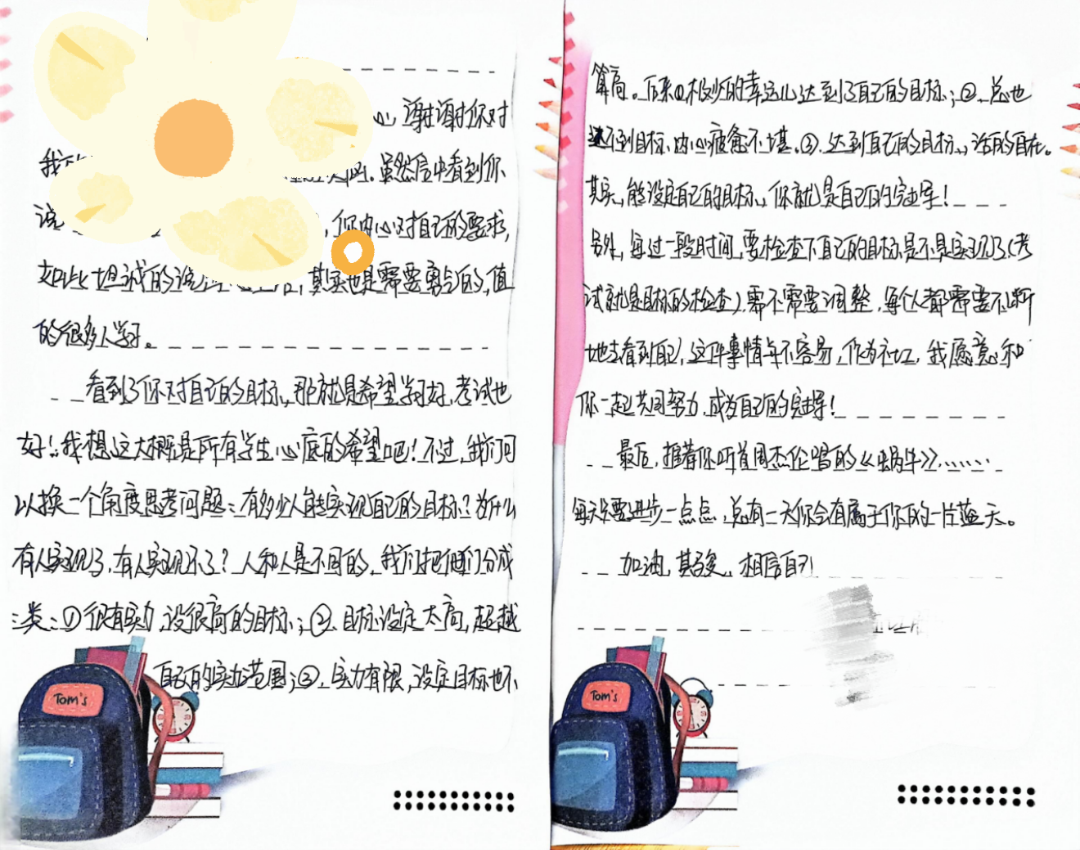 心,谢谢你对
我的 。虽然信中看到你
说 ,你内心对自己的要求,
如此坦诚的说 ,其实也是需要勇气的,值
的很多人学习。
看到了你对自己的目标,那就是希望学习好,考试也
好!我想这大概是所有学生心底的希望吧!不过,我们可
以换一个角度思考问题:有多少人能实现自己的目标?为什么
有人实现了,有人实现不了?人和人是不同的,我们把他们分成
三类:①很有实力,设很高的目标;②、目标设定太高,超越
自己的实力范围;③、实力有限,设定目标也不
Tom's
算高。后来①极少的幸运儿达到了自己的目标;②、总也
达不到目标,内心疲惫不堪。③、达到自己的目标,活的自在。
其实,能设定自己的目标,你就是自己的主宰!
另外,每过一段时间,要检查下自己的目标是不是实现了(考
试就是目标的检查),需不需要调整,每个人都需要不断
地去看到自己,这件事情与不容易,作为社工,我愿意和
你一起共同努力,成为自己的主宰!
最后,推荐你听首周杰伦唱的《蜗牛》,……
每天要进步一点点,总有一天你会有属于你的一片蓝天。
加油, 相信自己
Tom's